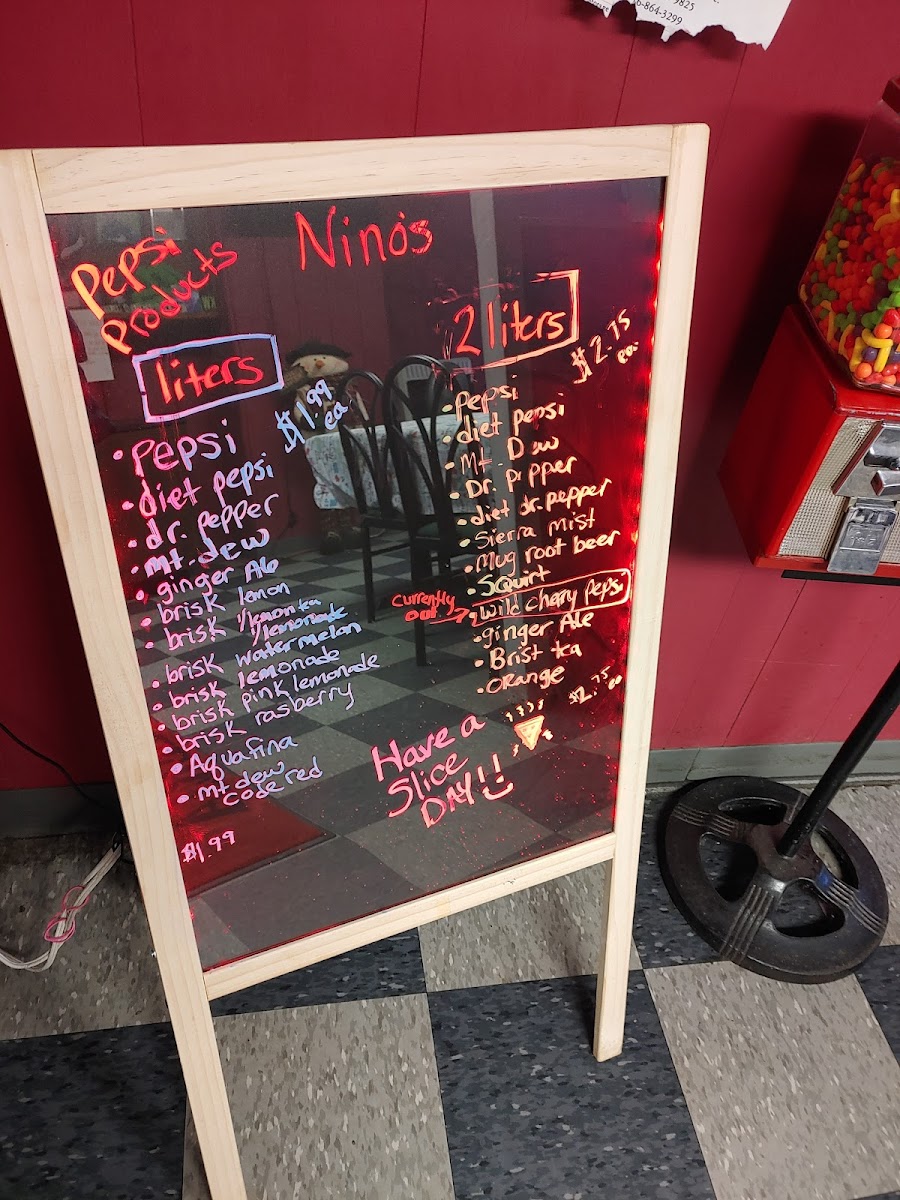 9825
6-864-3299
Pepsi
Products
Nino's
liters
$1.99
ea
• Pepsi
• diet pepsi
• dr. pepper
• mt. dew
• ginger Ale
• brisk lemon
• brisk 1/2 lemon tea
1/2 lemonade
• brisk watermelon
• brisk lemonade
• brisk pink lemonade
• brisk rasberry
• Aquafina
• mt dew
code red
$1.99
2 liters
$2.75
ea.
• Pepsi
• diet pepsi
• Mt. Dew
• Dr. Pepper
• diet dr. pepper
• Sierra mist
• Mug root beer
• Squirt
Currently
out
• wild cherry pepsi
• ginger Ale
• Brist tea
• Orange
$2.75 ea
Have a
Slice
DAY!!